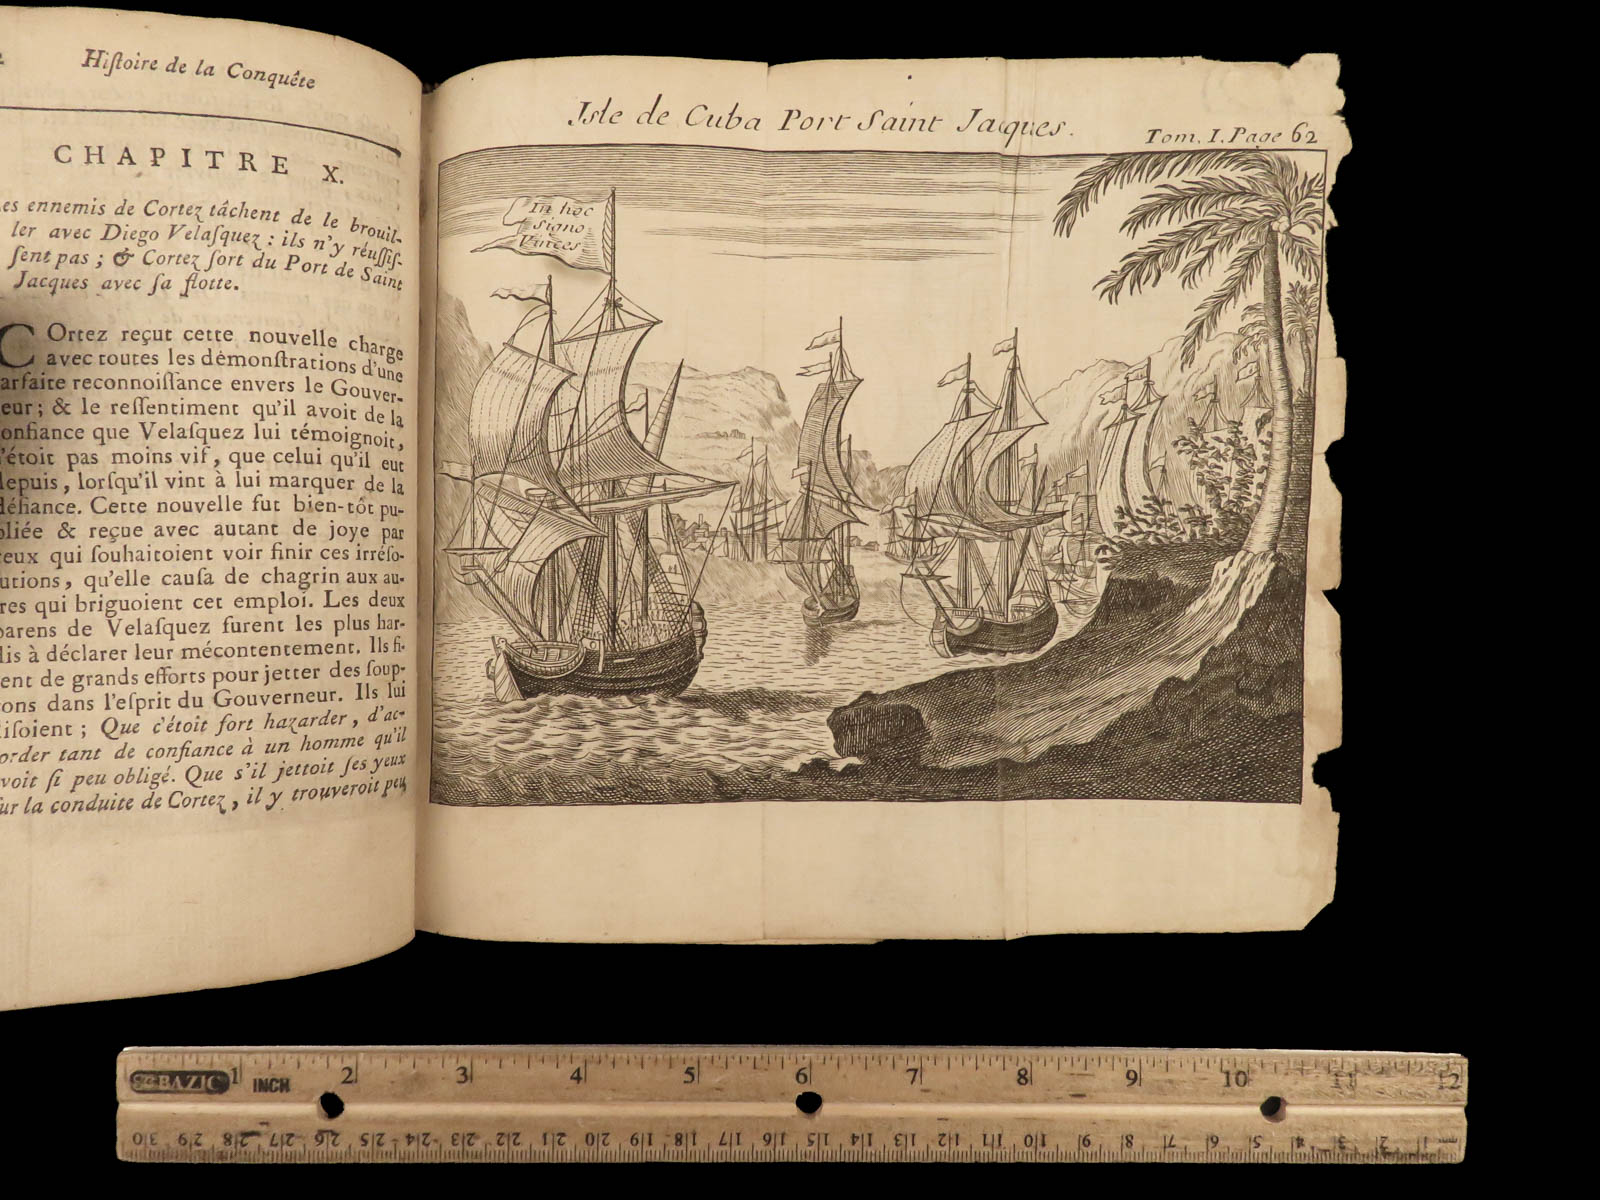 Hiſtoire de la Conquête
CHAPITRE X.
es ennemis de Cortez tâchent de le brouil-
ler avec Diego Velaſquez : ils n'y réuſſiſ-
ſent pas ; & Cortez ſort du Port de Saint
Jacques avec ſa flotte.
COrtez reçut cette nouvelle charge
avec toutes les démonſtrations d'une
arfaite reconnoiſſance envers le Gouver-
eur ; & le reſſentiment qu'il avoit de la
onfiance que Velaſquez lui témoignoit,
'étoit pas moins vif, que celui qu'il eut
depuis, lorſqu'il vint à lui marquer de la
défiance. Cette nouvelle fut bien-tôt pu-
bliée & reçue avec autant de joye par
ceux qui ſouhaitoient voir finir ces irréſo-
utions, qu'elle cauſa de chagrin aux au-
res qui briguoient cet emploi. Les deux
parens de Velaſquez furent les plus har-
dis à déclarer leur mécontentement. Ils fi-
ent de grands efforts pour jetter des ſoup-
ons dans l'eſprit du Gouverneur. Ils lui
diſoient ; Que c'étoit fort hazarder, d'ac-
order tant de confiance à un homme qu'il
voit ſi peu obligé. Que s'il jettoit ſes yeux
ſur la conduite de Cortez, il y trouveroit peu
Isle de Cuba Port Saint Jacques.
Tom. I. Page 62
In hoc
Signo
Vinces
BAZIC 1 INCH 2 3 4 5 6 7 8 9 10 11 12
30 29 28 27 26 25 24 23 22 21 20 19 18 17 16 15 14 13 12 11 10 9 8 7 6 5 4 3 2 1 mm